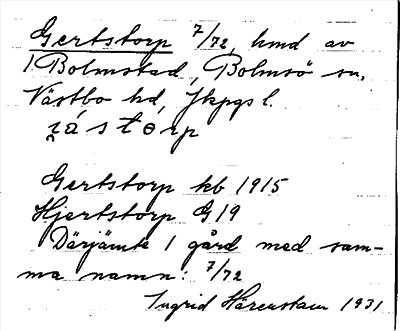 Gertstorp 7/72, hmd av
1 Bolmstad, Bolmsö sn,
Västbo hd, Jkpgs l.
Gertstorp kb 1915
Hjertstorp G19
Därjämte 1 gård med sam-
ma namn: 7/72
Ingrid Härenstam 1931